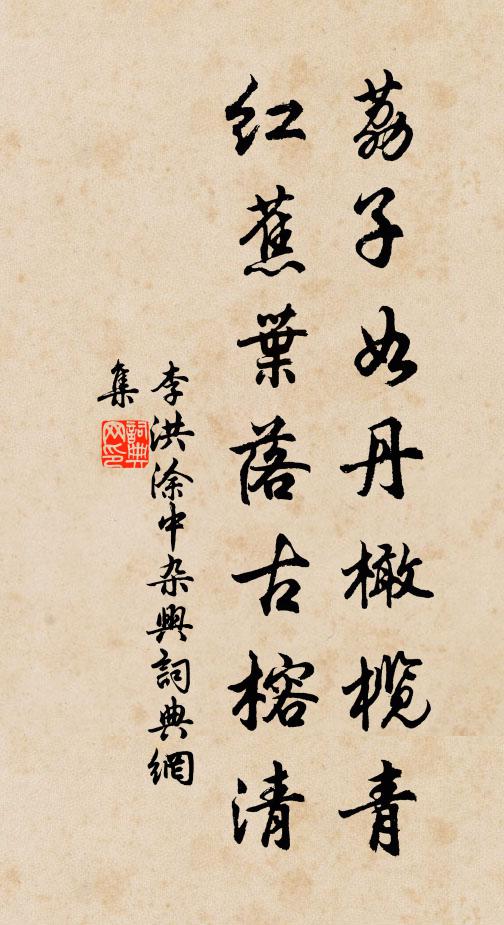 荔子如丹橄榄青
红蕉葉落古榕清
李洪涂中杂興詞典網
集
詞典
网印